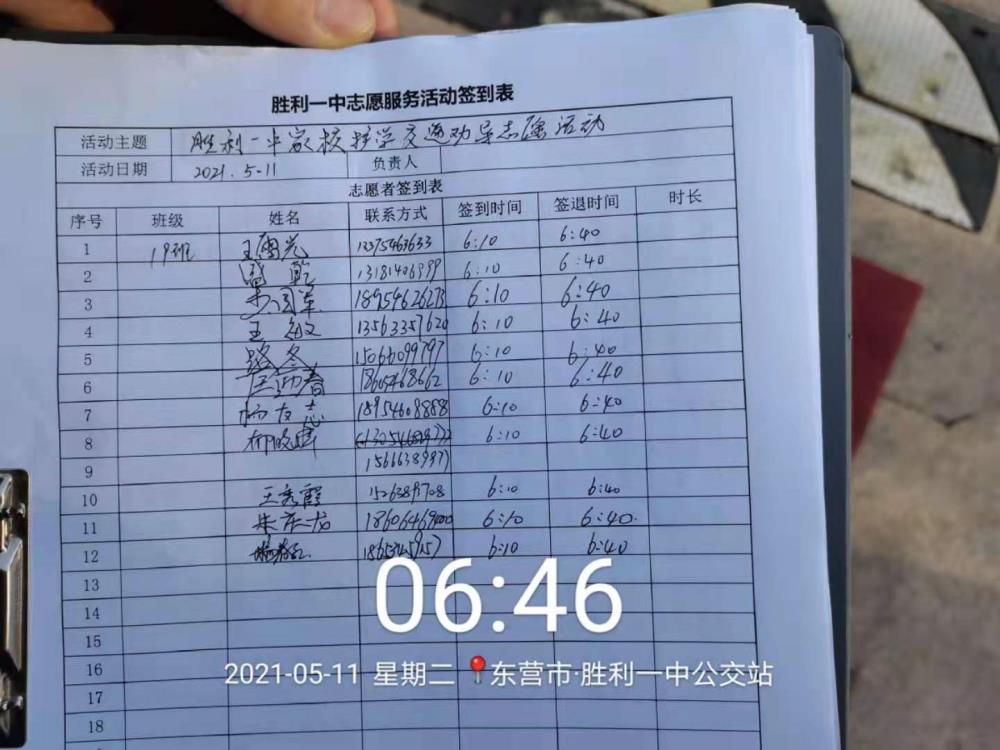 胜利一中志愿服务活动签到表
活动主题 胜利一中家校护学交通劝导志愿活动
活动日期 2021.5-11 负责人
志愿者签到表
序号 班级 姓名 联系方式 签到时间 签退时间 时长
1 19班 6:10 6:40
2 13181406999 6:10 6:40
3 6:10 6:40
4 王 敏 13563357620 6:10 6:40
5 路冬 15066099797 6:10 6:40
6 18605468662 6:10 6:40
7 杨友志 18954608888 6:10 6:40
8 柳晓辉 6:10 6:40
9
10 王秀霞 6:10 6:40
11 6:10 6:40
12 6:10 6:40
13
14
15
16
17
18
06:46
2021-05-11 星期二 东营市·胜利一中公交站